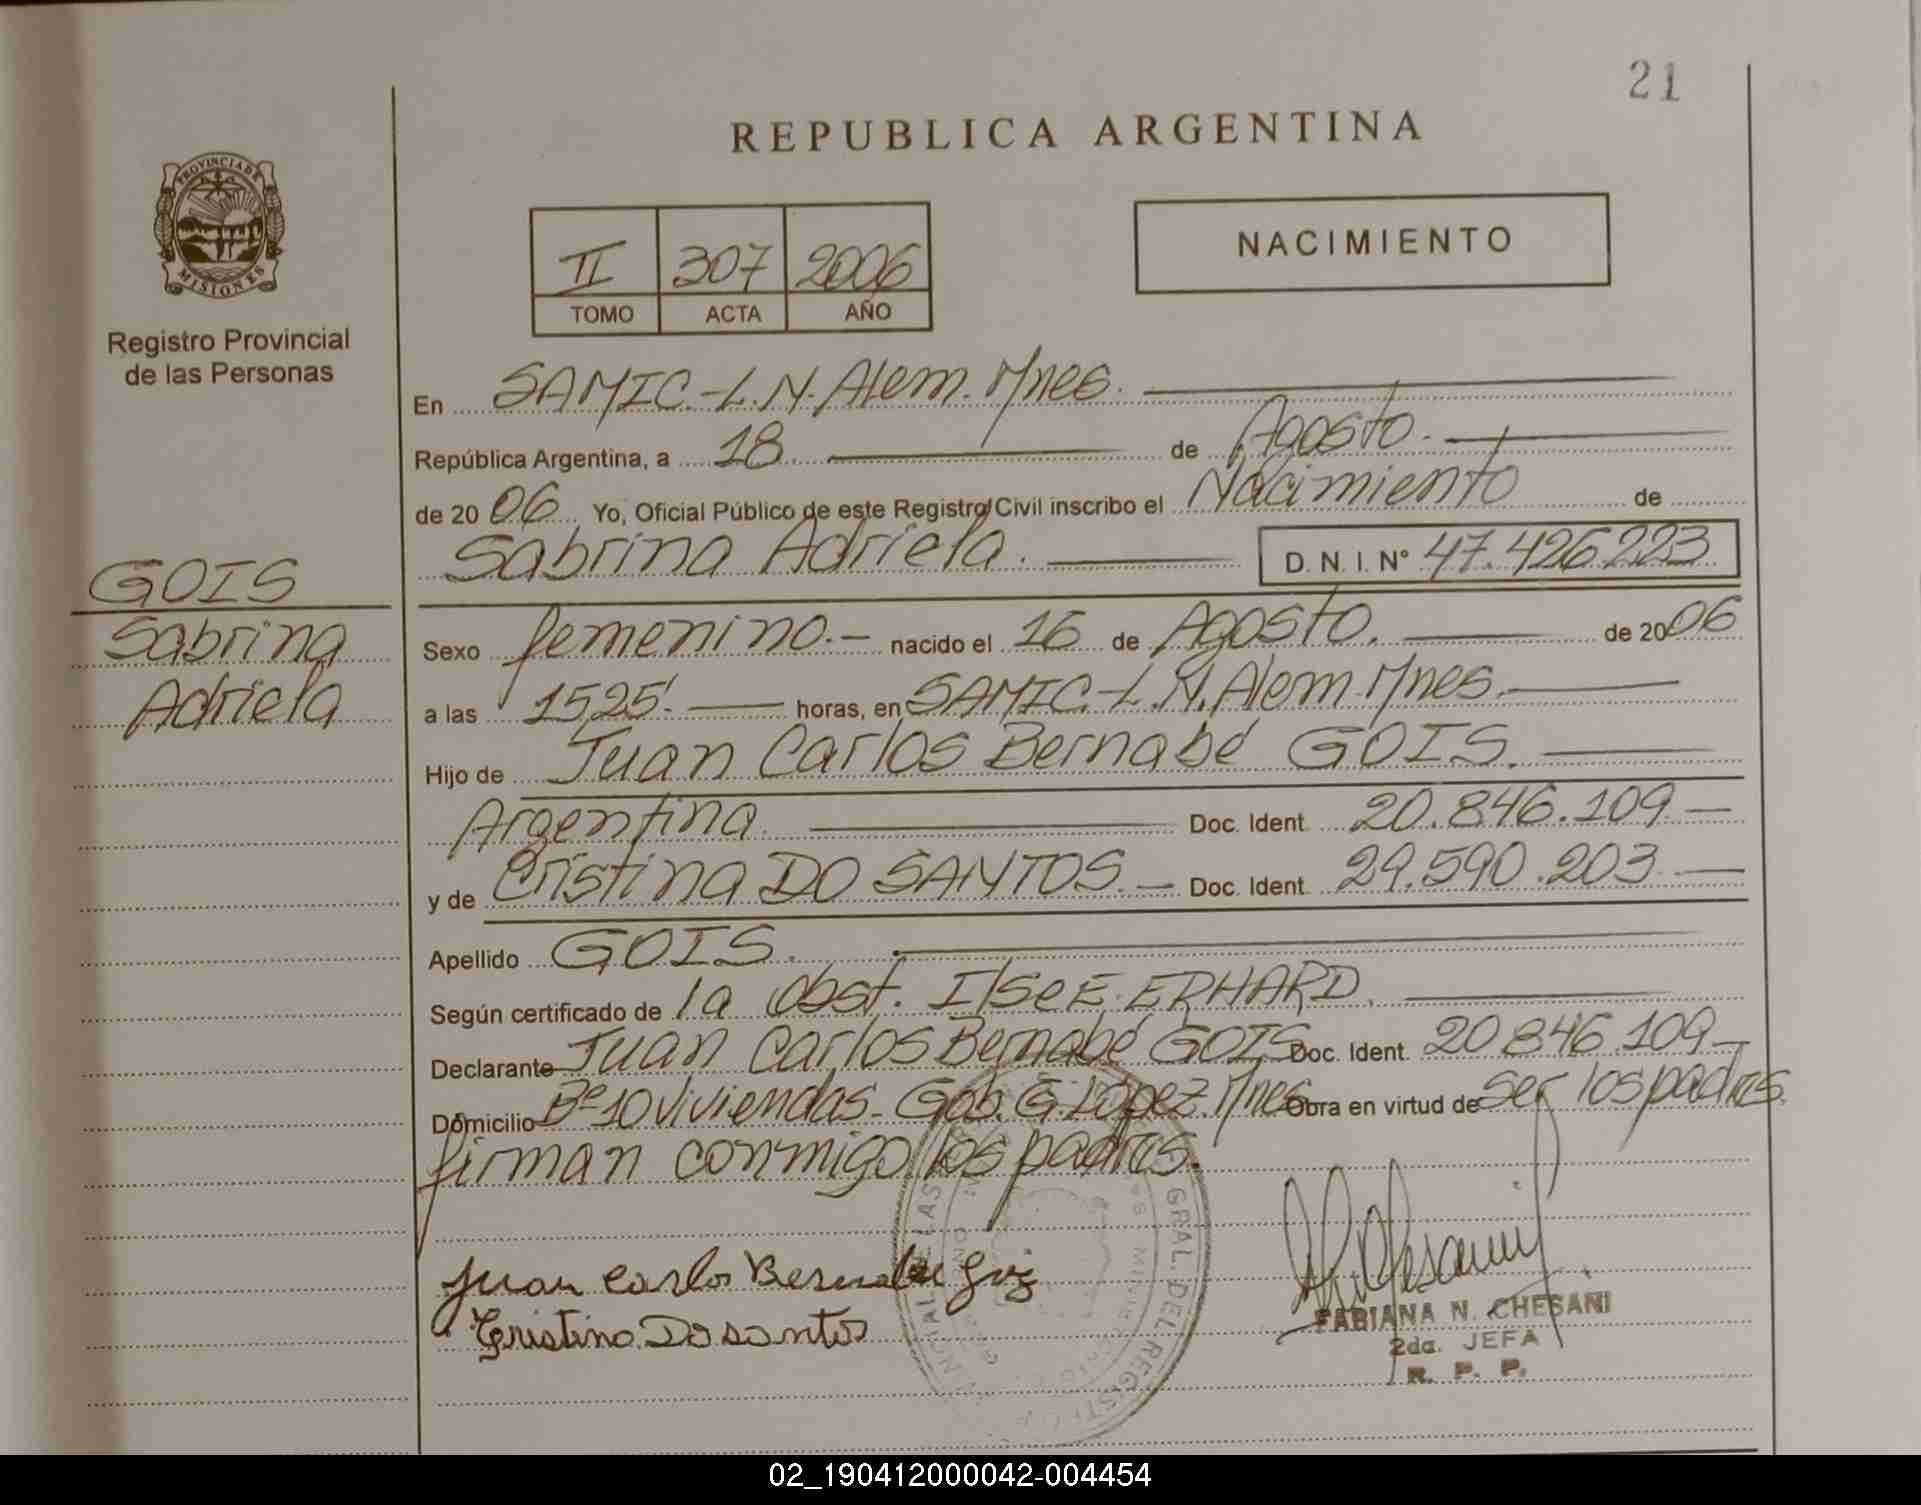 21
REPUBLICA ARGENTINA
PROVINCIA DE MISIONES
Registro Provincial
de las Personas
II 307 2006
TOMO ACTA AÑO
NACIMIENTO
En SAMIC.-L.N.Alem.Mnes.
República Argentina, a 18 de Agosto.
de 20 06 Yo, Oficial Público de este Registro Civil inscribo el Nacimiento de
Sabrina Adriela. D. N. I. N° 47.426.223
GOIS
Sabrina
Adriela
Sexo femenino.- nacido el 16 de Agosto. de 20 06
a las 1525'. horas, en SAMIC.-L.N.Alem.Mnes.
Hijo de Juan Carlos Bernabé GOIS.
Argentina. Doc. Ident. 20.846.109.-
y de Cristina DO SANTOS.- Doc. Ident. 29.590.203.-
Apellido GOIS.
Según certificado de la obst. Ilse E. ERHARD.
Declarante Juan Carlos Bernabé GOIS Doc. Ident. 20 846.109-
Domicilio B° 10 viviendas- Gob. G. López. Mnes. Obra en virtud de ser los padres
firman conmigo los padres.
Juan Carlo Bernabe Gois
Cristina Do santos
FABIANA N. CHESANI
2da. JEFA
R. P. P.
GRAL. DEL REGIST
02_190412000042-004454